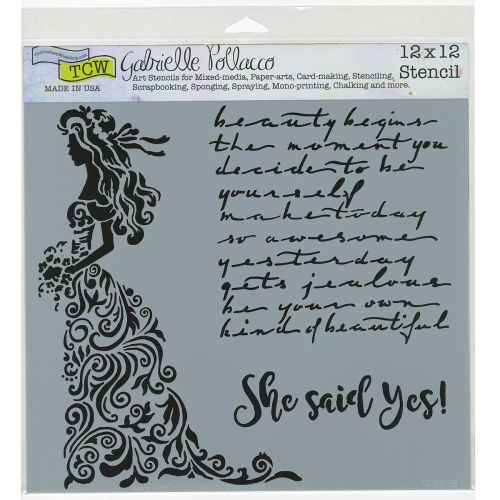 TheCraftersWorkshop.com
TCW
MADE IN USA
Gabrielle Pollacco
12x12
Stencil
Art Stencils for Mixed-media, Paper-arts, Card-making, Stenciling,
Scrapbooking, Sponging, Spraying, Mono-printing, Chalking and more.
beauty begins
the moment you
decide to be
yourself
make today
so awesome
yesterday
gets jealous
be your own
kind of beautiful
She said Yes!
TCW659